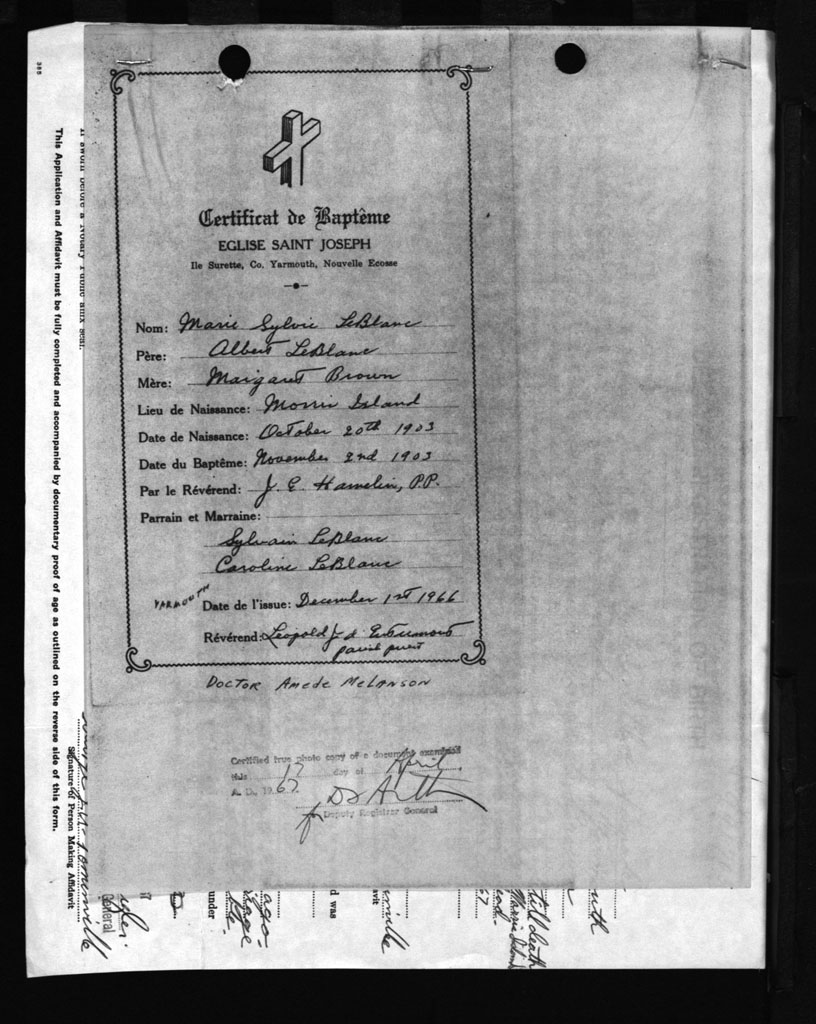 Certificat de Baptême
EGLISE SAINT JOSEPH
Ile Surette, Co. Yarmouth, Nouvelle Ecosse
Nom: Marie Sylvie LeBlanc
Père: Albert LeBlanc
Mère: Margaret Brown
Lieu de Naissance: Morris Island
Date de Naissance: October 20th 1903
Date du Baptême: November 2nd 1903
Par le Révérend: J. E. Hamelin, P.P.
Parrain et Marraine:
Sylvain LeBlanc
Caroline LeBlanc
YARMOUTH Date de l'issue: December 1st 1966
Révérend: Leopold J. d'Entremont
parish priest
DOCTOR AMEDE MELANSON
Certified true photo copy of a document examined
this 17 day of April
A. D., 1967.
for Deputy Registrar General
385
This Application and Affidavit must be fully completed and accompanied by documentary proof of age as outlined on the reverse side of this form.
Signature of Person Making Affidavit
General
under
d was
67
till death
Morris Island